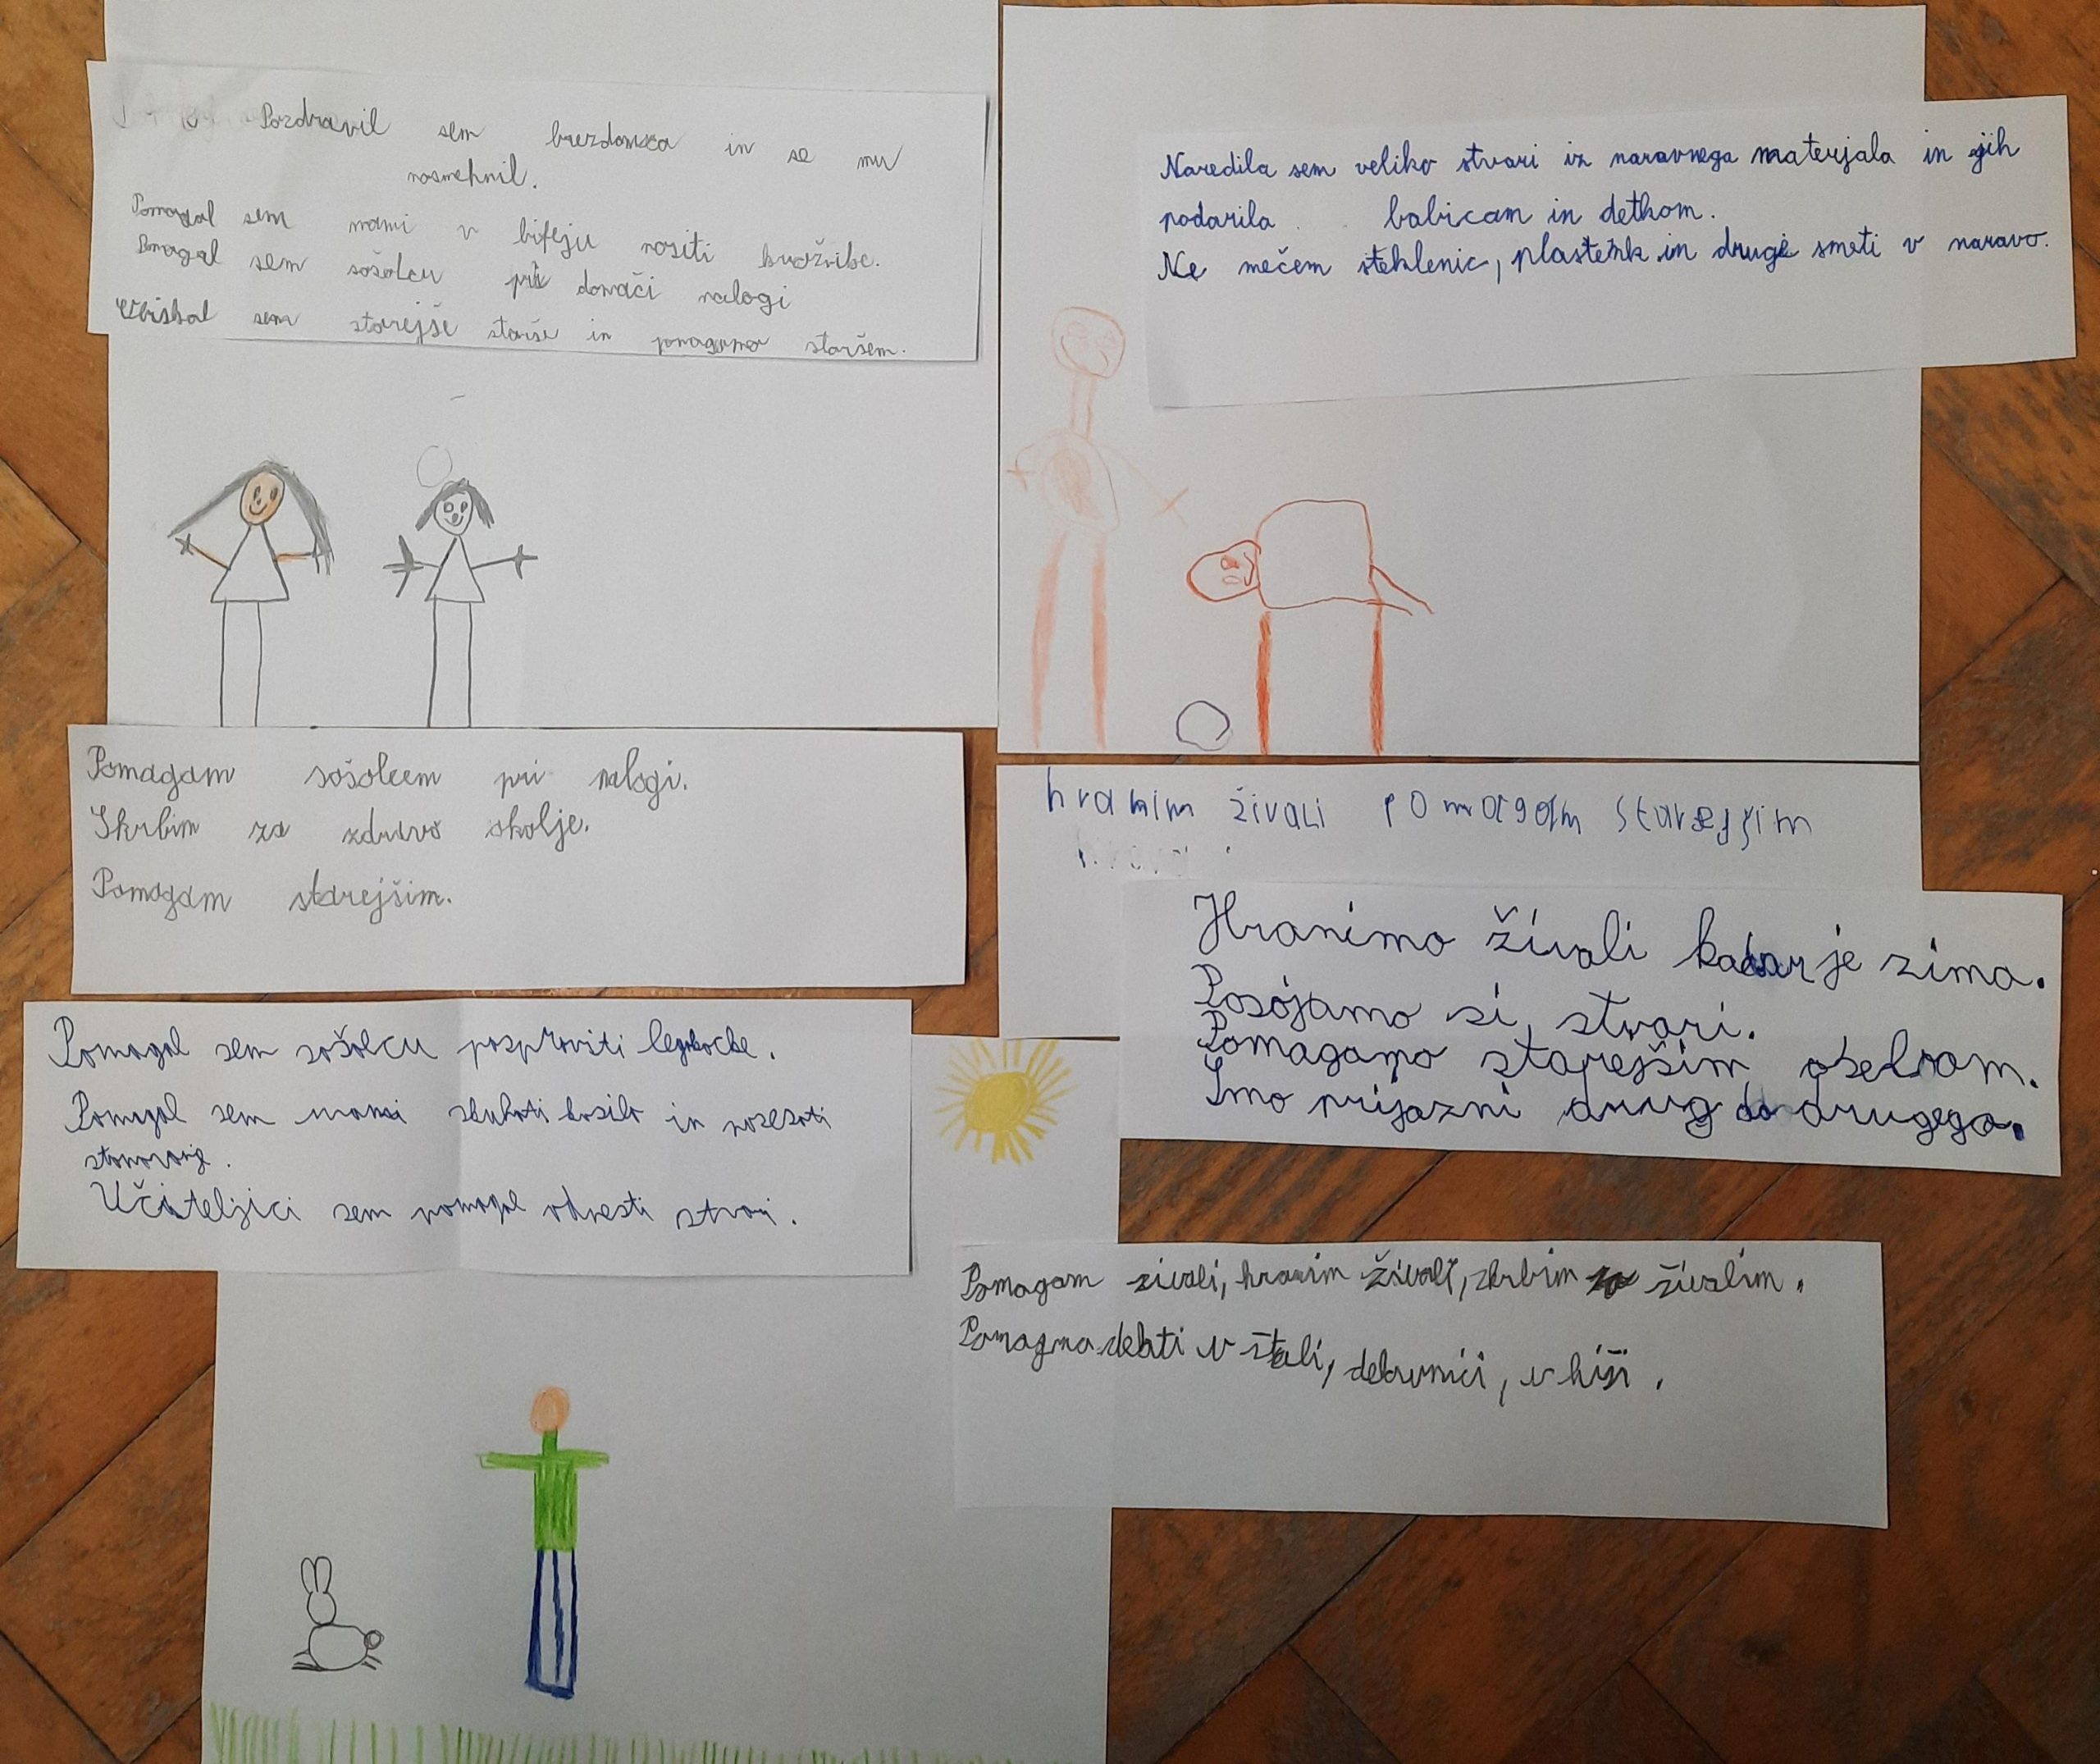 Pozdravil sem brezdomca in se mu
nasmehnil.
Pomagal sem mami v bifeju nositi
Pomagal sem sošolcu pri domači nalogi
sem starejše starše in pomagamo staršem.
Naredila sem veliko stvari iz naravnega materjala in jih
podarila babicam in dedkom.
Ne mečem steklenic, plastenk in druge smeti v naravo.
Pomagam sošolcem pri nalogi.
Skrbim za zdravo okolje.
Pomagam starejšim.
hranim živali pomagam starejšim
Hranimo živali kadar je zima.
Posojamo si stvari.
Pomagamo starejšim osebam.
Smo prijazni drug do drugega.
Pomagal sem sošolcu pospraviti legokocke.
Pomagal sem mami skuhati kosilo in posesati
stanovanje.
Učiteljici sem pomagal odnesti stvari.
Pomagam živali, hranim živali, skrbim živalim.
Pomagma delati v štali, delavnici, v hiši.